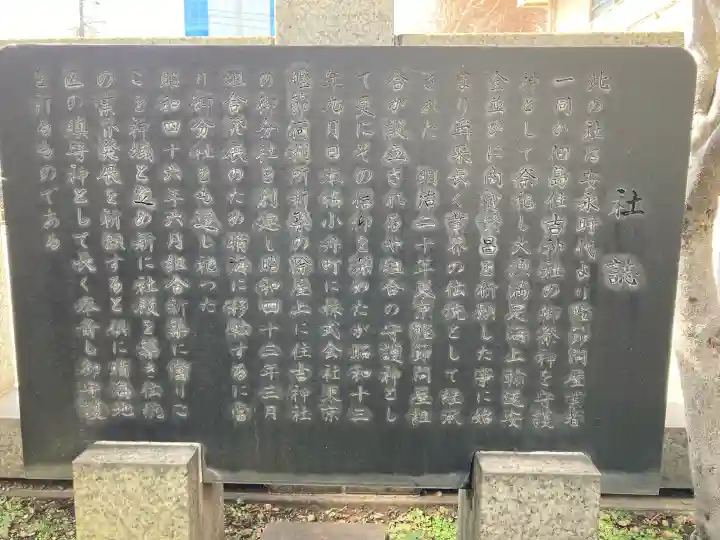 社誌
此の社は安永時代より鰹節問屋有着
一同が佃島住吉神社の御祭神を守護
神として祭祀し大漁満足海上輸送安
全並びに商売繁昌を祈願した事に始
まり爾来長く業界の伝統として継承
された 明治二十年東京鰹節問屋組
合が設立されるや組合の守護神とし
て更にその信仰を深めたが昭和十三
年九月日本橋小舟町に株式会社東京
鰹節河利所新築の際屋上に住吉神社
の御分社を創建し昭和四十三年三月
組合発展のため晴海に移転するに当
り御分社をも遷し祀った
昭和四十六年六月組合新築に当りこ
こを神域と定め新に社殿を築き伝統
の業界発展を祈願すると共に晴海地
区の鎮守神として長く奉斎し御守護
を祈るものである